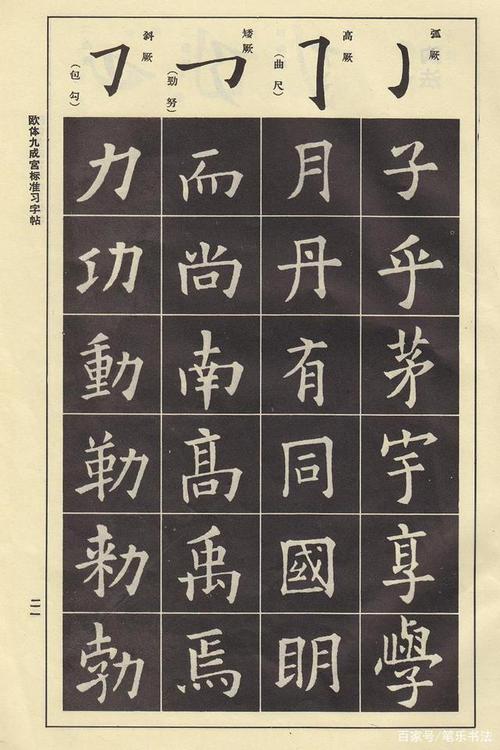 弧厥
子乎茅宇享學
高厥
(曲尺)
月丹有同國眀
矮厥
(勁努)
而尚南髙禹焉
斜厥
(包勾)
力功動勒勑勃
欧体九成宫标准习字帖
二一
百家号/笔乐书法